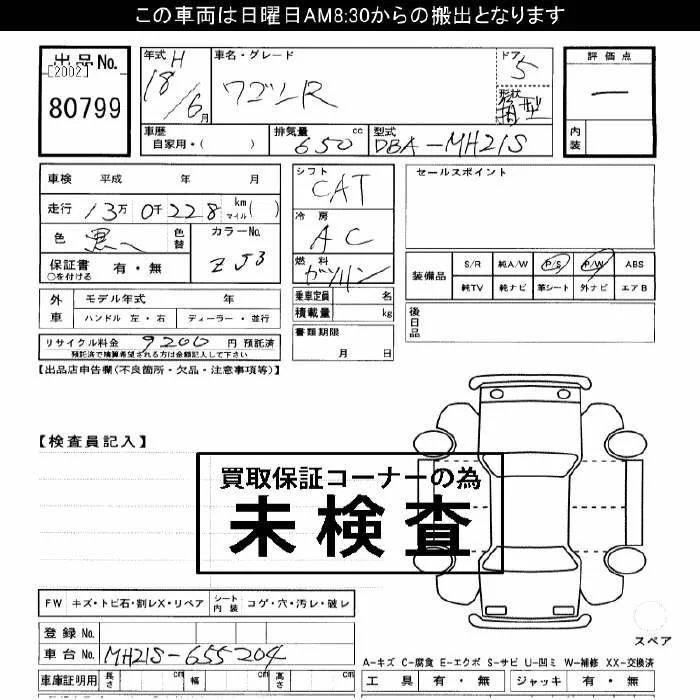 この車両は日曜日AM8:30からの搬出となります
出品No.
[2002]
80799
年式 H
18/6月
車名・グレード
ワゴンR
ドア
5
形状
箱型
評価点
ー
内装
車歴
自家用・( )
排気量
650 cc
型式
DBA-MH21S
車検 平成 年 月
走行 13万0千228 km マイル( )
色 黒へ 色替
カラーNo.
ZJ3
保証書 有・無
○を付ける
外車
モデル年式 年
ハンドル 左・右 ディーラー・並行
リサイクル料金 9200 円 預託済
預託済で精算希望される方は金額記入して下さい
シフト
CAT
冷房
AC
燃料
ガソリン
乗車定員 名
積載量 kg
書類期限
月 日
セールスポイント
装備品
S/R 純A/W P/S P/W ABS
純TV 純ナビ 革シート 外ナビ エアB
後日品
【出品店申告欄(不良箇所・欠品・注意事項等)】
【検査員記入】
買取保証コーナーの為
未検査
FW キズ・トビ石・割レX・リペア シート内装 コゲ・穴・汚レ・破レ
登録No.
車台No. MH21S-655204
車庫証明用 長さ cm 幅 cm 高さ cm
スペア
A-キズ C-腐食 E-エクボ S-サビ U-凹ミ W-補修 XX-交換済
工具 有・無 ジャッキ 有・無